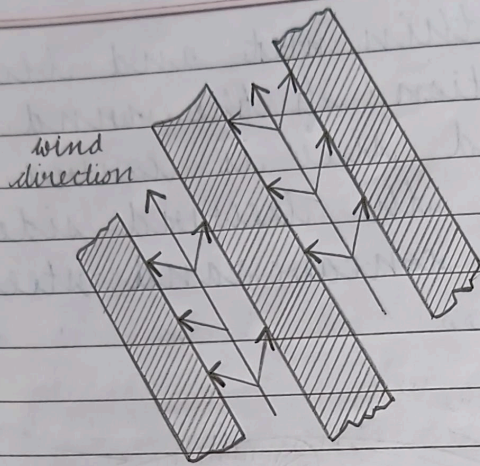 wind
direction